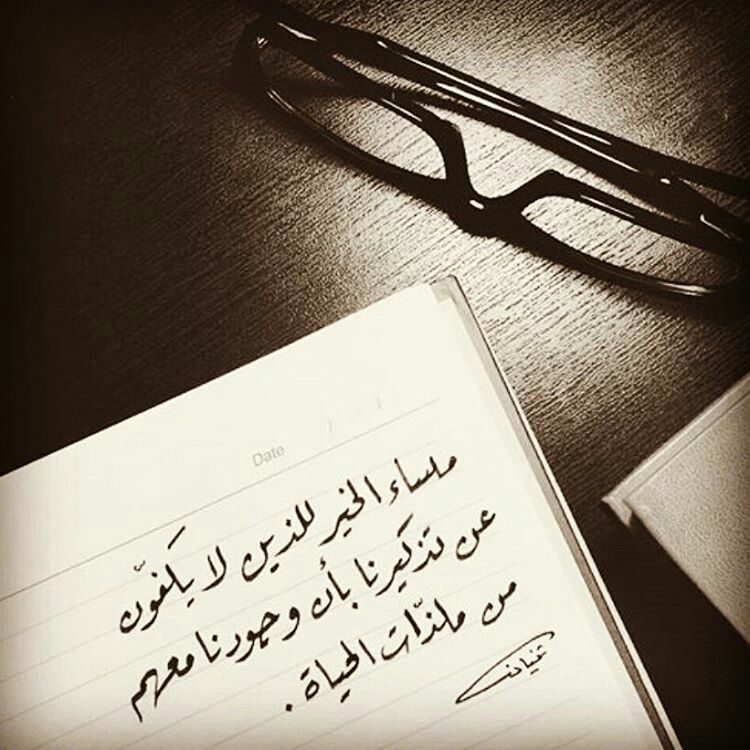 Date / /
مساء الخير للذين لا يَكفّون
عن تذكيرنا بأن وجودنا معهم
من ملذّات الحياة .